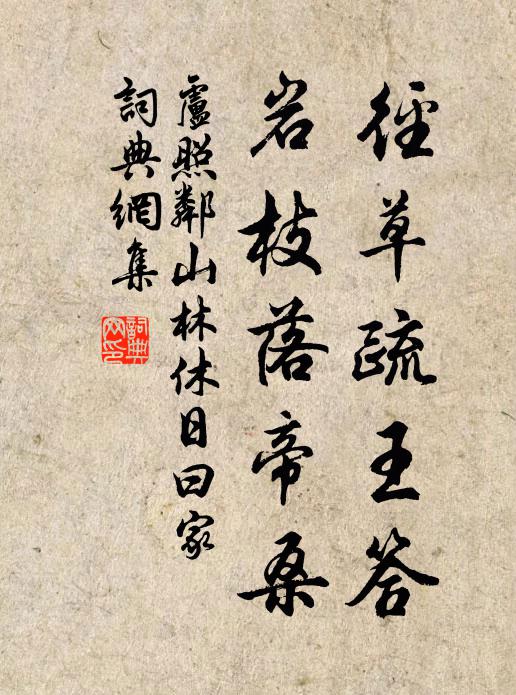 徑草疏王答
岩枝落帝桑
盧照鄰山林休日曰家
詞典網集
詞典網印